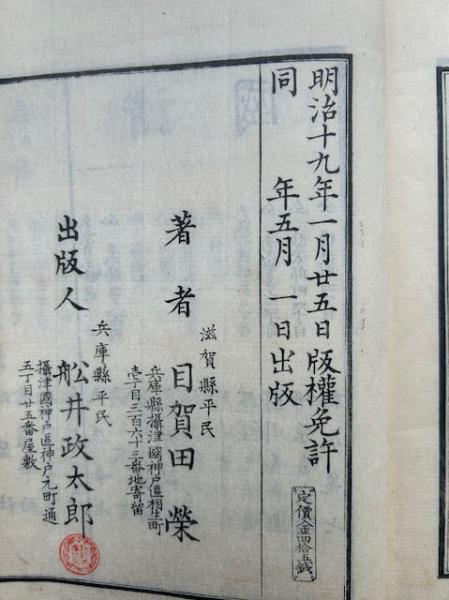 明治十九年一月廿五日版權免許
同　　年五月一日出版
定價金四拾五錢
著者
滋賀縣平民
目賀田榮
兵庫縣攝津國神戸區相生町
壱丁目三百六十三番地寄留
出版人
兵庫縣平民
舩井政太郎
攝津國神戸區神戸元町通
五丁目廿五番屋敷